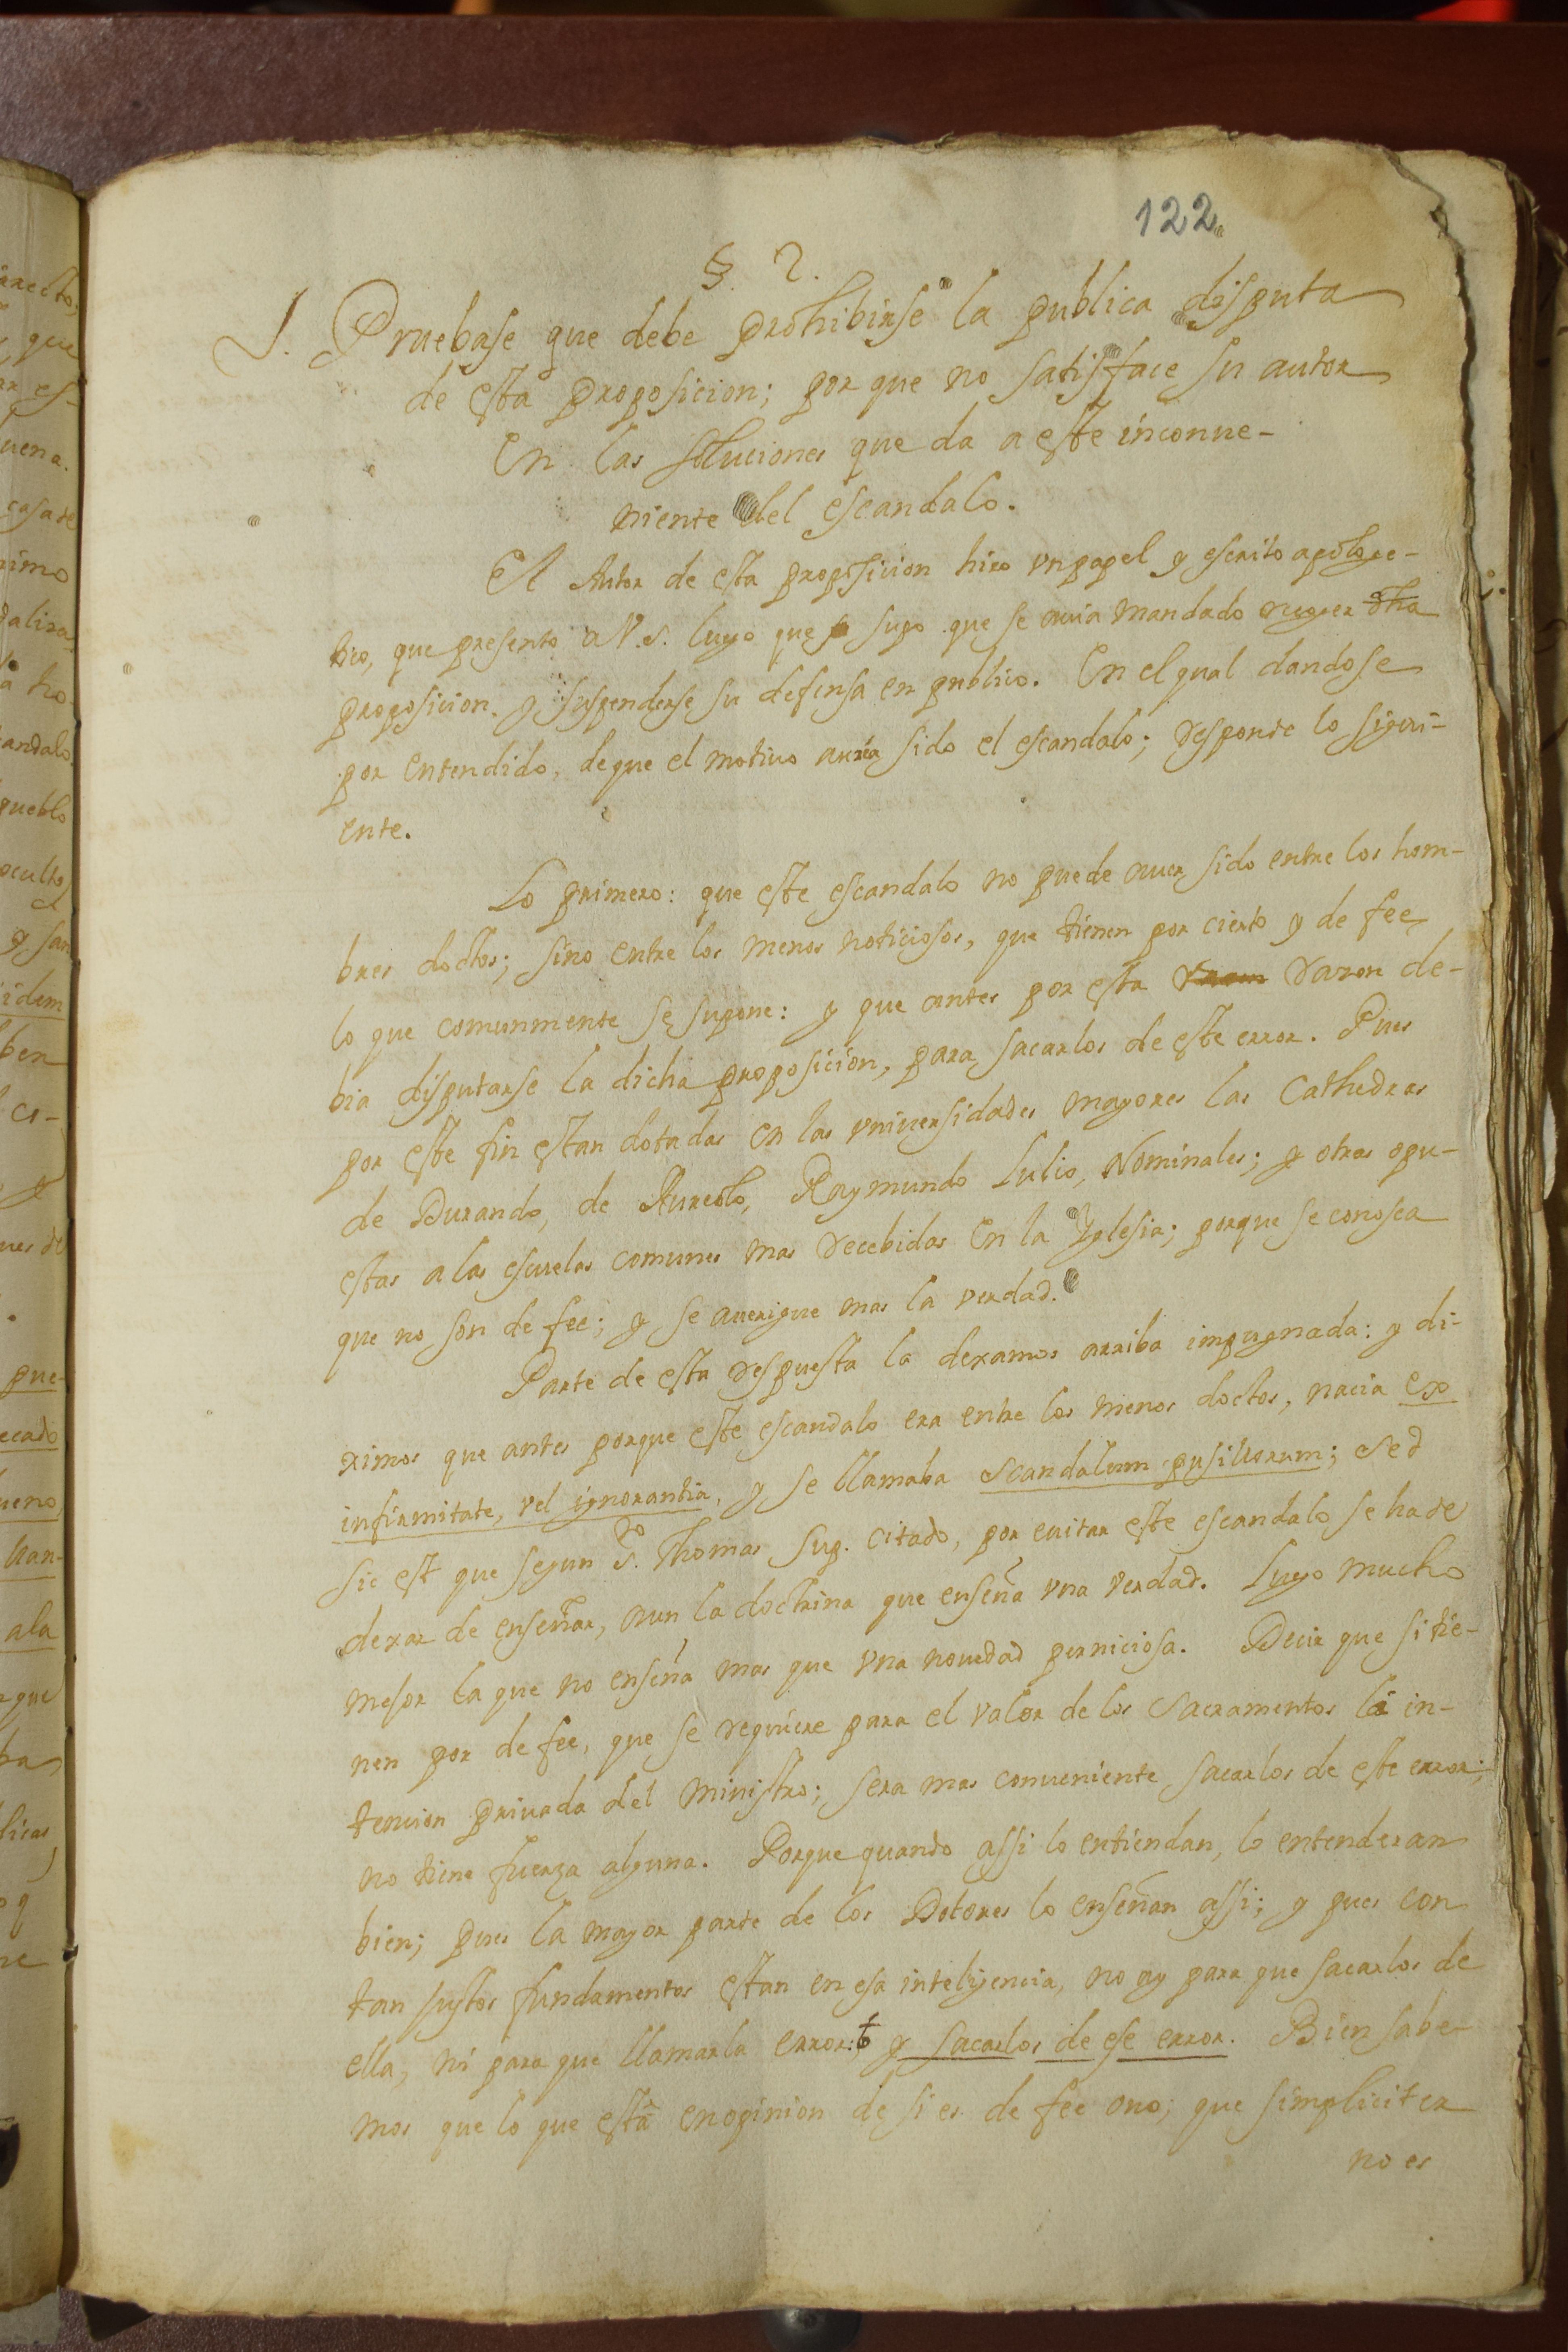 122
§. 2.
J. Pruebase que debe prohibirse la publica disputa
de esta proposicion; por que no satisface su autor
En las soluciones que da a este inconue-
niente del escandalo.
El Autor de esta proposicion hizo vn papel y escrito apologe-
tico, que presento a V.S. luego que supo que se auia mandado
proposicion. y suspenderse su defensa en publico. En el qual dandose
por entendido, de que el motiuo auia sido el escandalo; responde lo sigui-
ente.
Lo primero: que este escandalo no puede auer sido entre los hom-
bres doctos; sino entre los menos noticiosos, que tienen por cierto y de fee
lo que comunmente se supone: y que antes por esta razon de-
bia disputarse la dicha proposicion, para sacarlos de este error. Pues
por este fin estan dotadas en las vniuersidades mayores las Cathedras
de Durando, de Aureolo, Raymundo Lulio, Nominales; y otras opu-
estas a las escuelas comunes mas recebidas En la Yglesia; porque se conosca
que no son de fee; y se auerigue mas la verdad.
Parte de esta respuesta la dexamos arriba impugnada: y di-
ximos que antes porque este escandalo era entre los menos doctos, nacia ex
infirmitate, vel ignorantia, y se llamaba scandalum pusillorum; sed
sic est que segun S.to Thomas sup. citado, por euitar este escandalo se ha de
dexar de enseñar, aun la doctrina que enseña vna verdad. Luego mucho
mejor la que no enseña mas que vna nouedad perniciosa. Decir que si tie-
nen por de fee, que se requiere para el valor de los Sacramentos la in-
tencion priuada del Ministro; sera mas conueniente sacarlos de este error;
no tiene fuerza alguna. Porque quando assi lo entiendan, lo entenderan
bien; pues la mayor parte de los Dotores lo enseñan assi; y pues con
tan justos fundamentos estan en esa inteligencia, no ay para que sacarlos de
ella, ni para que llamarla error: y sacarlos de ese error. Bien sabe-
mos que lo que està en opinion de si es de fee o no; que simpliciter
no es